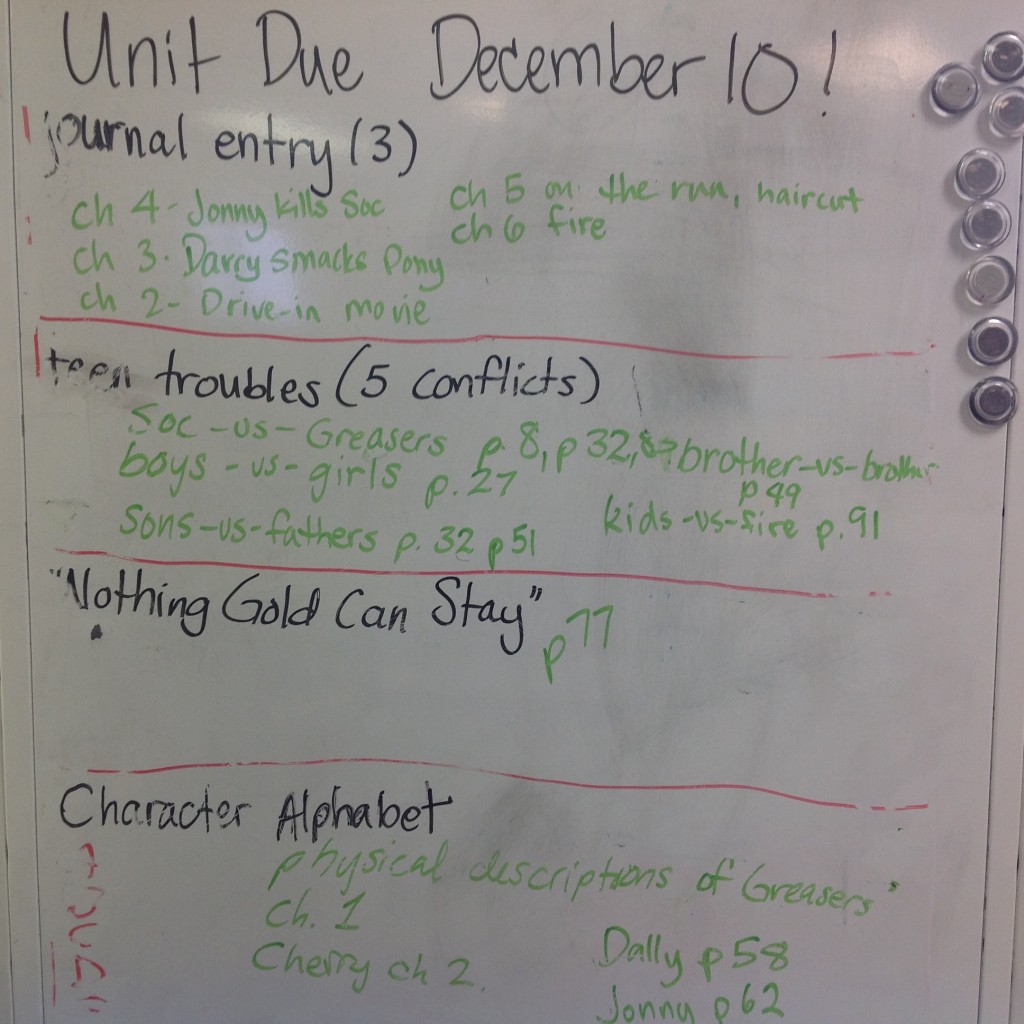 Unit Due December 10!
journal entry (3)
ch 4 - Jonny kills Soc
ch 5 on the run, haircut
ch 6 fire
ch 3. Darry smacks Pony
ch 2 - Drive-in movie
teen troubles (5 conflicts)
Soc -vs- Greasers p. 8, p 32,
boys - vs - girls p. 27
sons-vs-fathers p. 32 p51
brother-vs-brother
p 49
kids-vs-fire p. 91
"Nothing Gold Can Stay"
p 77
Character Alphabet
physical descriptions of Greasers
Ch. 1
Cherry ch 2.
Dally p 58
Jonny p 62